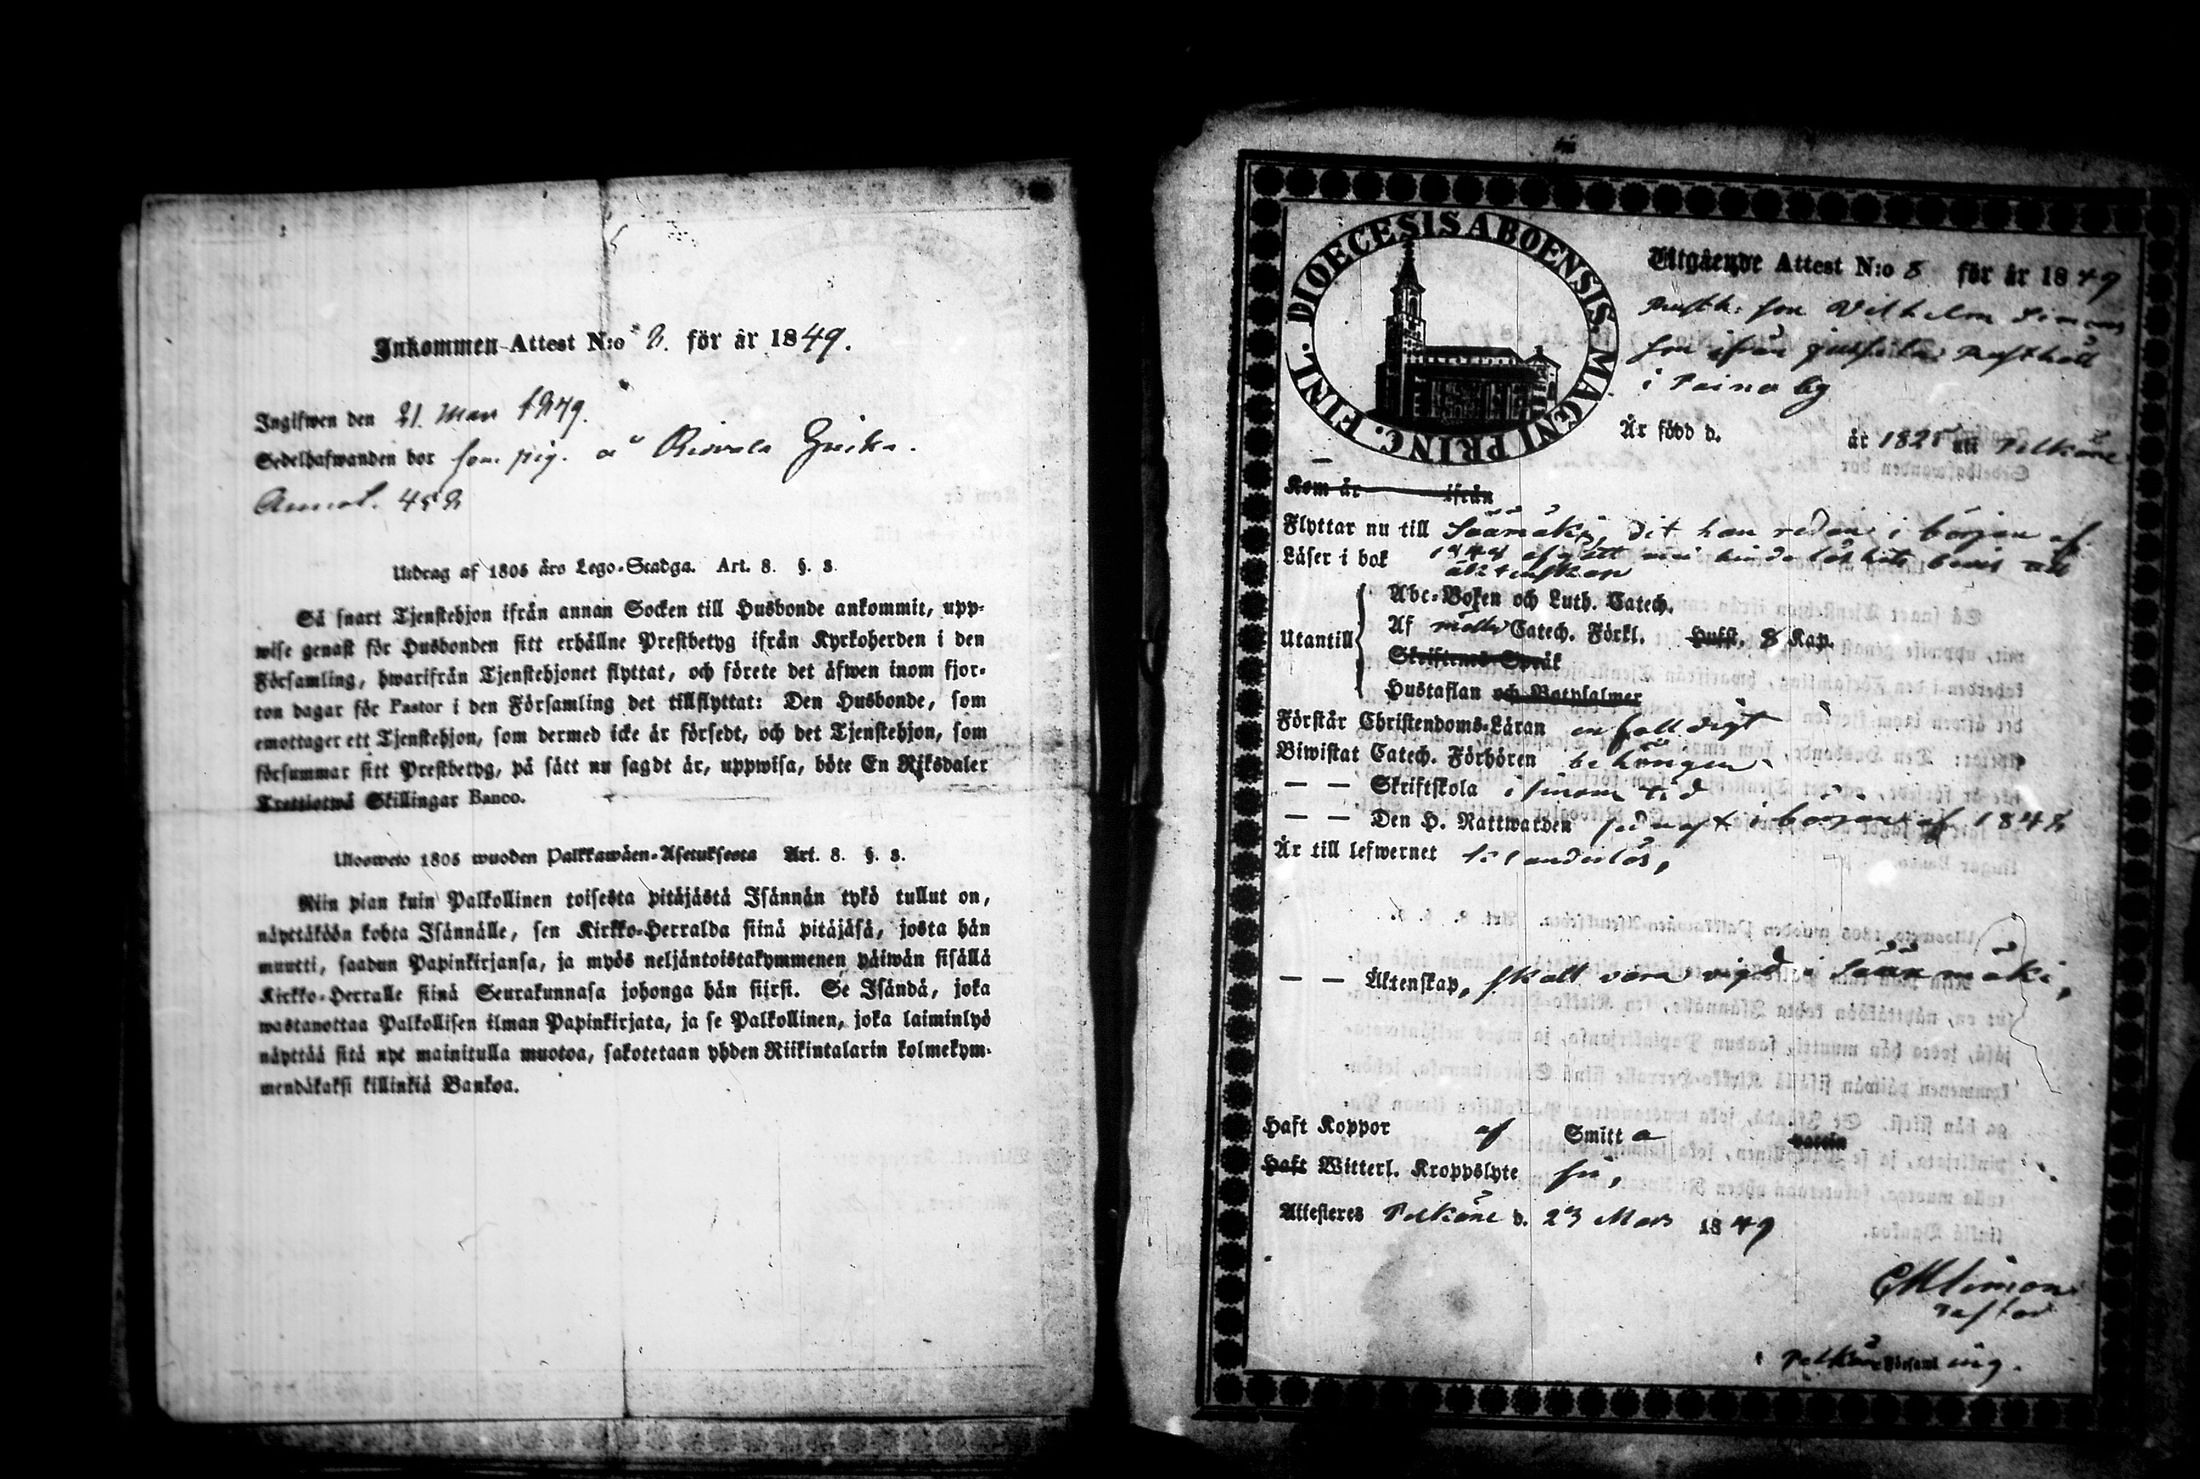 Inkommen-Attest N:o 2. för år 1849.
Ingifwen den 21. Mars 1849.
Sedelhafwanden bor som pig. å
Annot. 452
Utdrag af 1805 års Lego-Stadga. Art. 8. §. 3.
Så snart Tjenstehjon ifrån annan Socken till Husbonde ankommit, upp-
wise genast för Husbonden sitt erhållne Prestbetyg ifrån Kyrkoherden i den
Församling, hwarifrån Tjenstehjonet flyttat, och förete det äfwen inom fjor-
ton dagar för Pastor i den Församling det tillflyttat: Den Husbonde, som
emottager ett Tjenstehjon, som dermed icke är försedt, och det Tjenstehjon, som
försummar sitt Prestbetyg, på sätt nu sagdt är, uppwisa, böte En Riksdaler
Trettiotwå Skillingar Banco.
Ulosweto 1805 wuoden Palkkawäen-Asetuksesta Art. 8. §. 3.
Niin pian kuin Palkollinen toisesta pitäjästä Isännän tykö tullut on,
näyttäköön kohta Isännälle, sen Kirkko-Herralda siinä pitäjäsä, josta hän
muutti, saadun Papinkirjansa, ja myös neljäntoistakymmenen päiwän sisällä
Kirkko-Herralle siinä Seurakunnasa johonga hän siirsi. Se Isändä, joka
wastanottaa Palkollisen ilman Papinkirjata, ja se Palkollinen, joka laiminlyö
näyttää sitä nyt mainitulla muotoa, sakotetaan yhden Riikintalarin kolmekym-
mendäkaksi killinkiä Bankoa.
DIOECESIS ABOENSIS. MAGNI PRINC. FINL.
Utgående Attest N:o 8 för år 1849
Rusth. son Vilhelm Simons
son ifrån Rusthåll
i Paino by
Är född d. år 1825 uti Pelkäne
Kom år ifrån
Flyttar nu till Sääxmäki, dit han redan i början af
Läser i bok 1848 afgått med hinderlöshets bevis till
äktenskap
Utantill
Abc-Boken och Luth. Catech.
Af Catech. Förkl. Hufst. 8 Kap.
Skriftenes Språk
Hustaflan och Botpsalmer
Förstår Christendoms-Läran enfaldigt
Biwistat Catech. Förhören behörigen
— — Skriftskola i sinom tid
— — Den H. Nattwarden sednast i början af 1848
Är till lefwernet
— — Äktenskap, skall vara vigd i Sääxmäki,
Haft Koppor af Smitta
Haft Witterl. Kroppslyte fri,
Attesteres Pelkäne d. 23 Mars 1849
Pastor
i Pelkäne Församling.